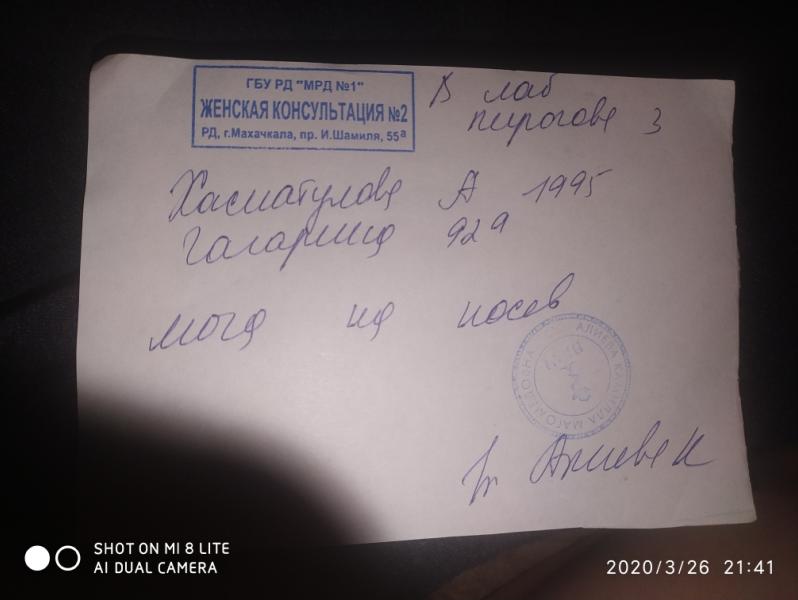 ГБУ РД "МРД №1"
ЖЕНСКАЯ КОНСУЛЬТАЦИЯ №2
РД, г.Махачкала, пр. И.Шамиля, 55а
В лаб
пирогова 3
Хасматулова А 1995
Гагарина 92а
моча на посев
АЛИЕВА КАМИЛЛА МАГОМЕДОВНА
ВРАЧ
Вр Алиева К
SHOT ON MI 8 LITE
AI DUAL CAMERA
2020/3/26 21:41